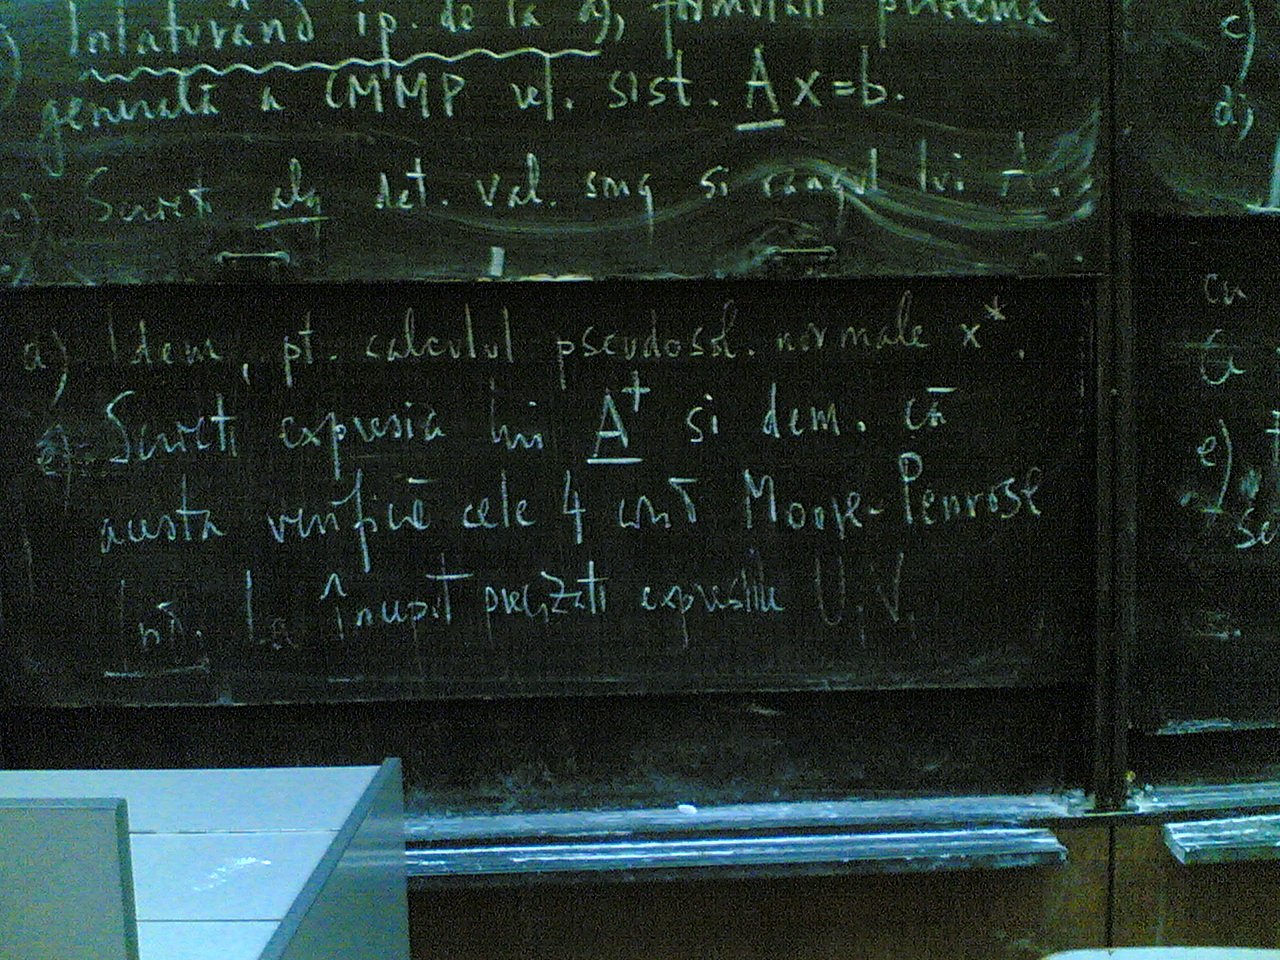 Înlăturând ip. de la a), formulați problema
generală a CMMP ref. sist. A x = b.
c) Scrieți alg det. val. sing și rangul lui A.
d) Idem, pt. calculul pseudosol. normale x*.
e) Scrieți expresia lui A⁺ si dem. că
acesta verifică cele 4 cond Moore-Penrose
La început precizați expresiile U, V.
c)
d)
e)